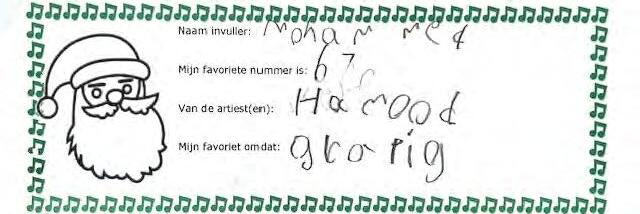 Naam invuller: Mohammed
Mijn favoriete nummer is: 67
Van de artiest(en): Hamood
Mijn favoriet omdat: grapig